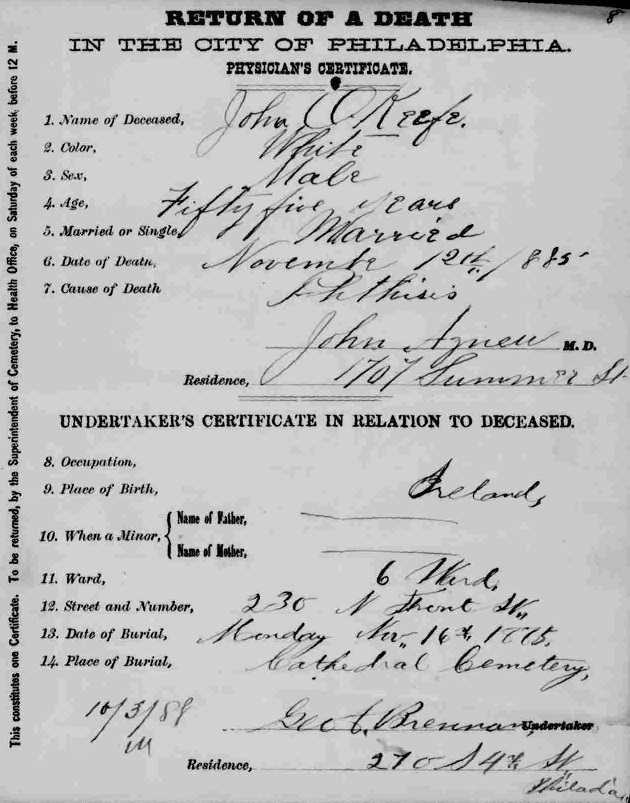 8
RETURN OF A DEATH
IN THE CITY OF PHILADELPHIA.
PHYSICIAN'S CERTIFICATE.
1. Name of Deceased, John O'Keefe.
2. Color, White
3. Sex, Male
4. Age, Fifty five years
5. Married or Single, Married
6. Date of Death, November 12th 1885
7. Cause of Death Phthisis
John Agnew M. D.
Residence, 1707 Summer St
UNDERTAKER'S CERTIFICATE IN RELATION TO DECEASED.
8. Occupation,
9. Place of Birth, Ireland,
10. When a Minor, { Name of Father,
Name of Mother,
11. Ward, 6 Ward,
12. Street and Number, 230 N Front St,,
13. Date of Burial, Monday Nov,, 16th, 1885,
14. Place of Burial, Cathedral Cemetery,
10/3/88
Brennan, Undertaker
Residence, 270 S 4th St
Philada,,
This constitutes one Certificate. To be returned, by the Superintendent of Cemetery, to Health Office, on Saturday of each week, before 12 M.